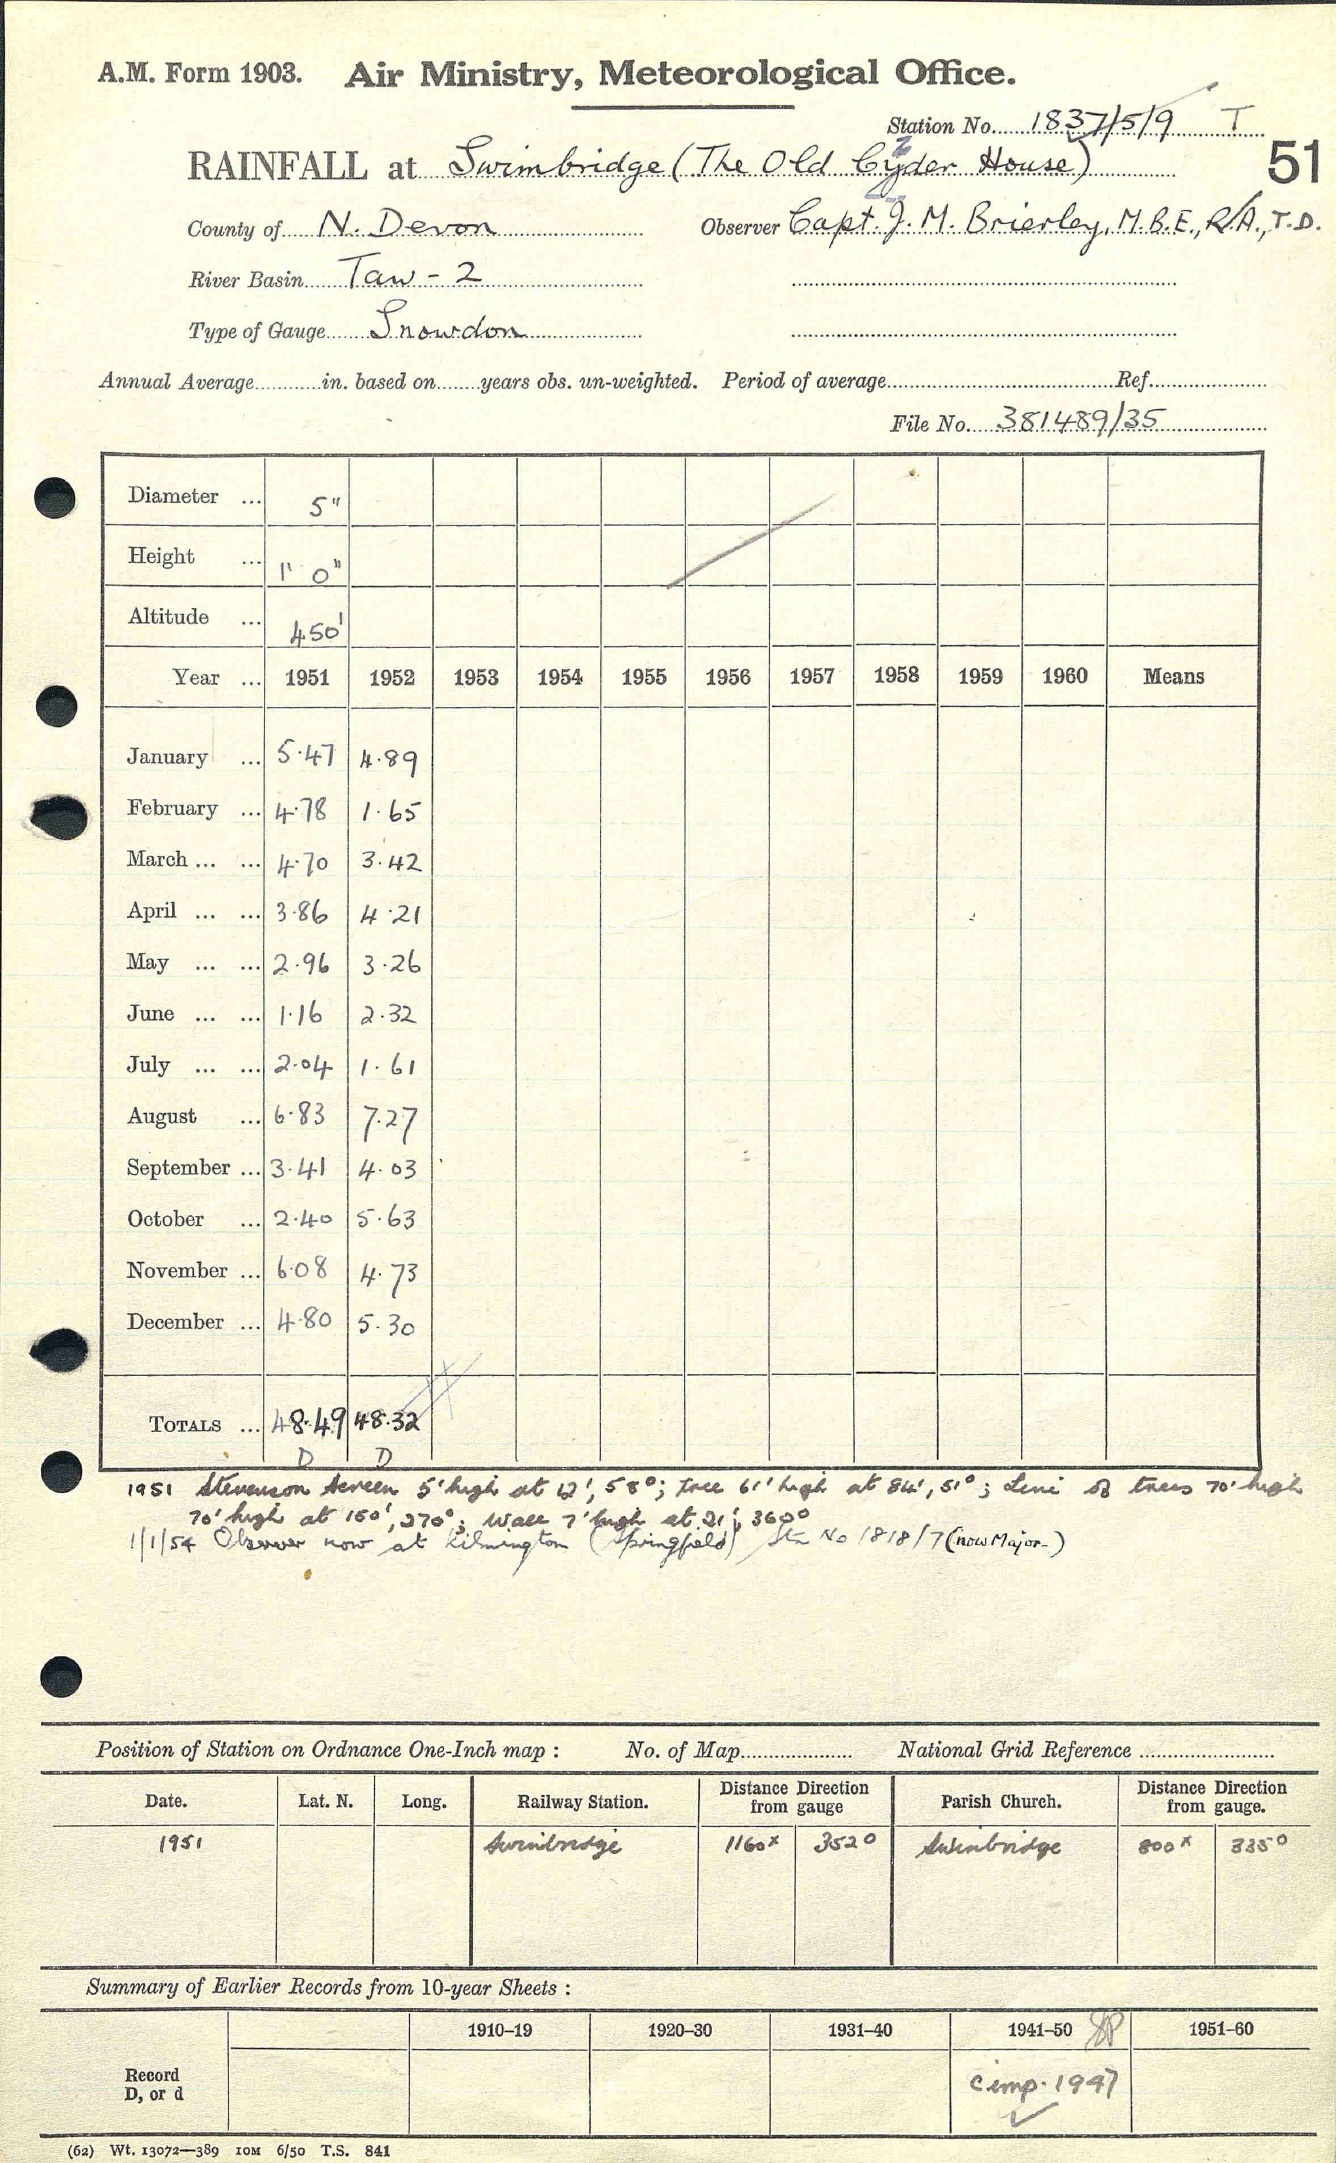 A.M. Form 1903. Air Ministry, Meteorological Office.
Station No. 1837/5/9 T
RAINFALL at Swimbridge (The Old Cyder House) 51
County of N. Devon Observer Capt. J. M. Brierley, M.B.E., R.A., T.D.
River Basin Taw - 2
Type of Gauge Snowdon
Annual Average in. based on years obs. un-weighted. Period of average Ref.
File No. 381489/35
Diameter ... 5"
Height ... 1' 0"
Altitude ... 450'
Year ... 1951 1952 1953 1954 1955 1956 1957 1958 1959 1960 Means
January ... 5.47 4.89
February ... 4.78 1.65
March ... ... 4.70 3.42
April ... ... 3.86 4.21
May ... ... 2.96 3.26
June ... ... 1.16 2.32
July ... ... 2.04 1.61
August ... 6.83 7.27
September ... 3.41 4.03
October ... 2.40 5.63
November ... 6.08 4.73
December ... 4.80 5.30
TOTALS ... 48.49 48.32
D D
1951 Stevenson Screen 5' high at 12', 58°; tree 61' high at 84', 51°; Line of trees 70' high
70' high at 150', 270°; Wall 7' high at 21', 360°
1/1/54 Observer now at Kilmington (Springfield) Stn No 1818/7 (now Major-)
Position of Station on Ordnance One-Inch map : No. of Map National Grid Reference
Date. Lat. N. Long. Railway Station. Distance Direction from gauge Parish Church. Distance Direction from gauge.
1951 Swimbridge 1160x 352° Swimbridge 800x 335°
Summary of Earlier Records from 10-year Sheets :
1910–19 1920–30 1931–40 1941–50 1951–60
Record
D, or d
c imp. 1947
(62) Wt. 13072—389 10M 6/50 T.S. 841